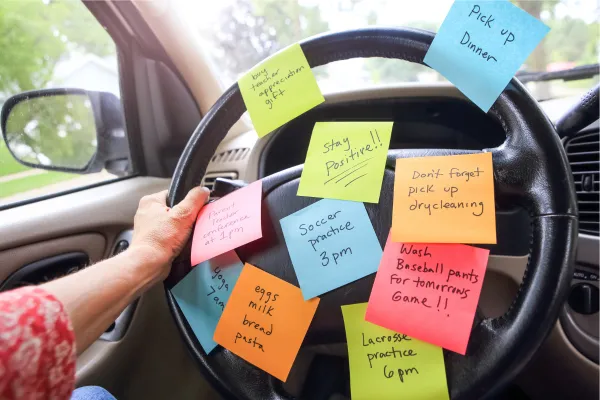 Pick up
Dinner
buy
teacher
appreciation
gift
Stay
Positive!!
Don't forget
pick up
drycleaning
Parent
teacher
conference
at 1pm
Soccer
practice
3pm
Wash
Baseball pants
for tomorrows
Game!!
Yoga
7am
eggs
milk
bread
pasta
Lacrosse
practice
6pm